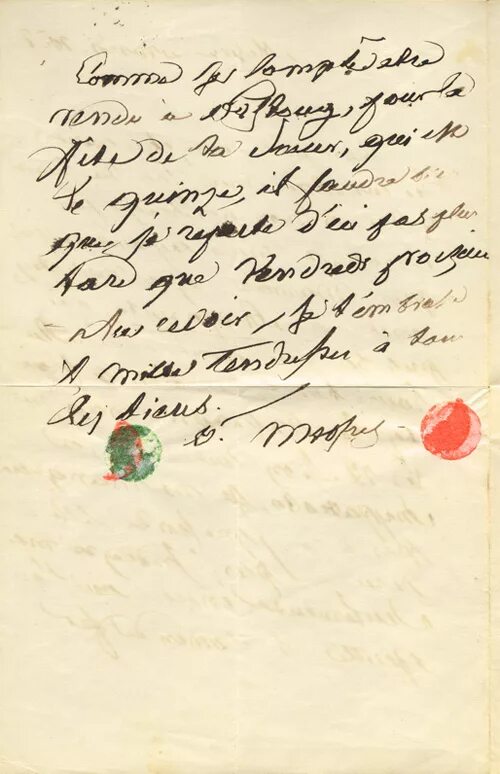 Comme je compte être
rendu à pour la
fête de ta sœur, qui est
le quinze, il faudra bien
que je reparte d'ici pas plus
tard que Vendredi prochain
revoir, je t'embrasse
& mille tendresses à tous
les tiens.